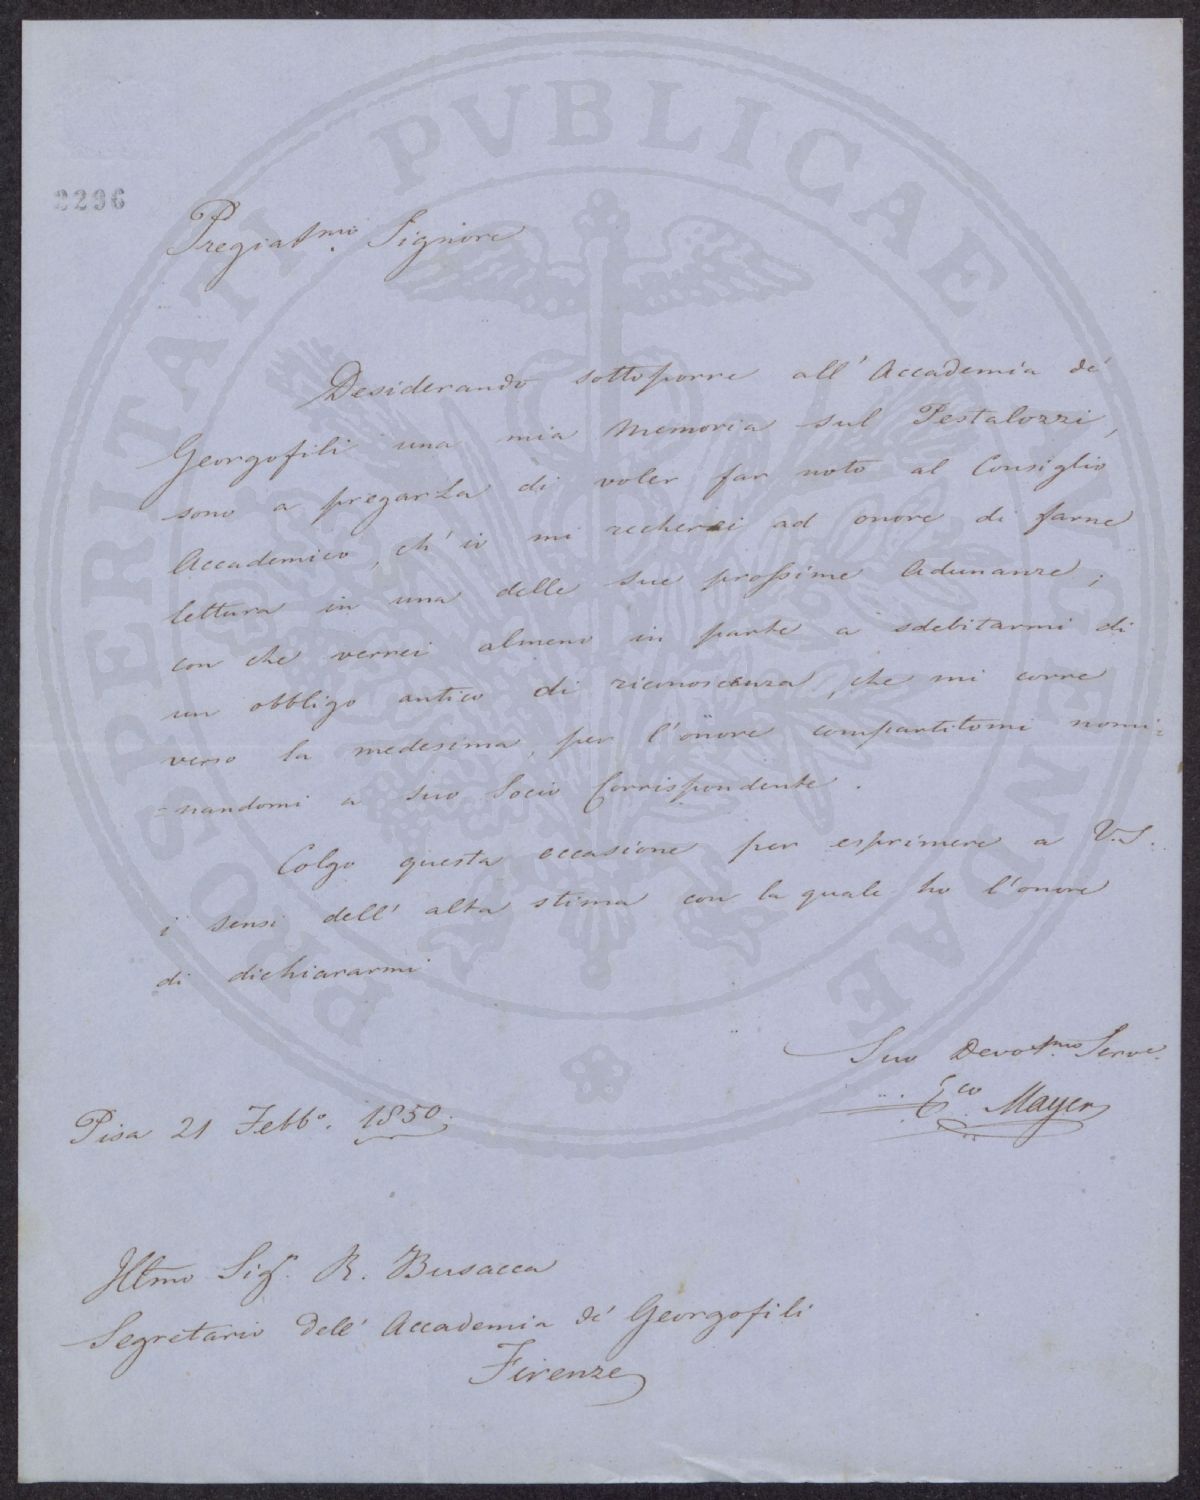 PROSPERITATI PVBLICAE AVGENDAE
2296
Pregiatmo. Signore
Desiderando sottoporre all' Accademia de'
Georgofili una mia Memoria sul Pestalozzi,
sono a pregarLa di voler far noto al Consiglio
Accademico, ch' io mi recherei ad onore di farne
lettura in una delle sue prossime Adunanze;
con che verrei almeno in parte a sdebitarmi di
un obbligo antico di riconoscenza, che mi corre
verso la medesima, per l'onore compartitomi nomi=
=nandomi a suo Socio Corrispondente.
Colgo questa occasione per esprimere a V.S.
i sensi dell' alta stima con la quale ho l'onore
di dichiararmi
Suo Devotmo. Serve.
Eco. Mayer
Pisa 21 Febbo. 1850.
Illmo Sigr. R. Busacca
Segretario dell' Accademia de' Georgofili
Firenze